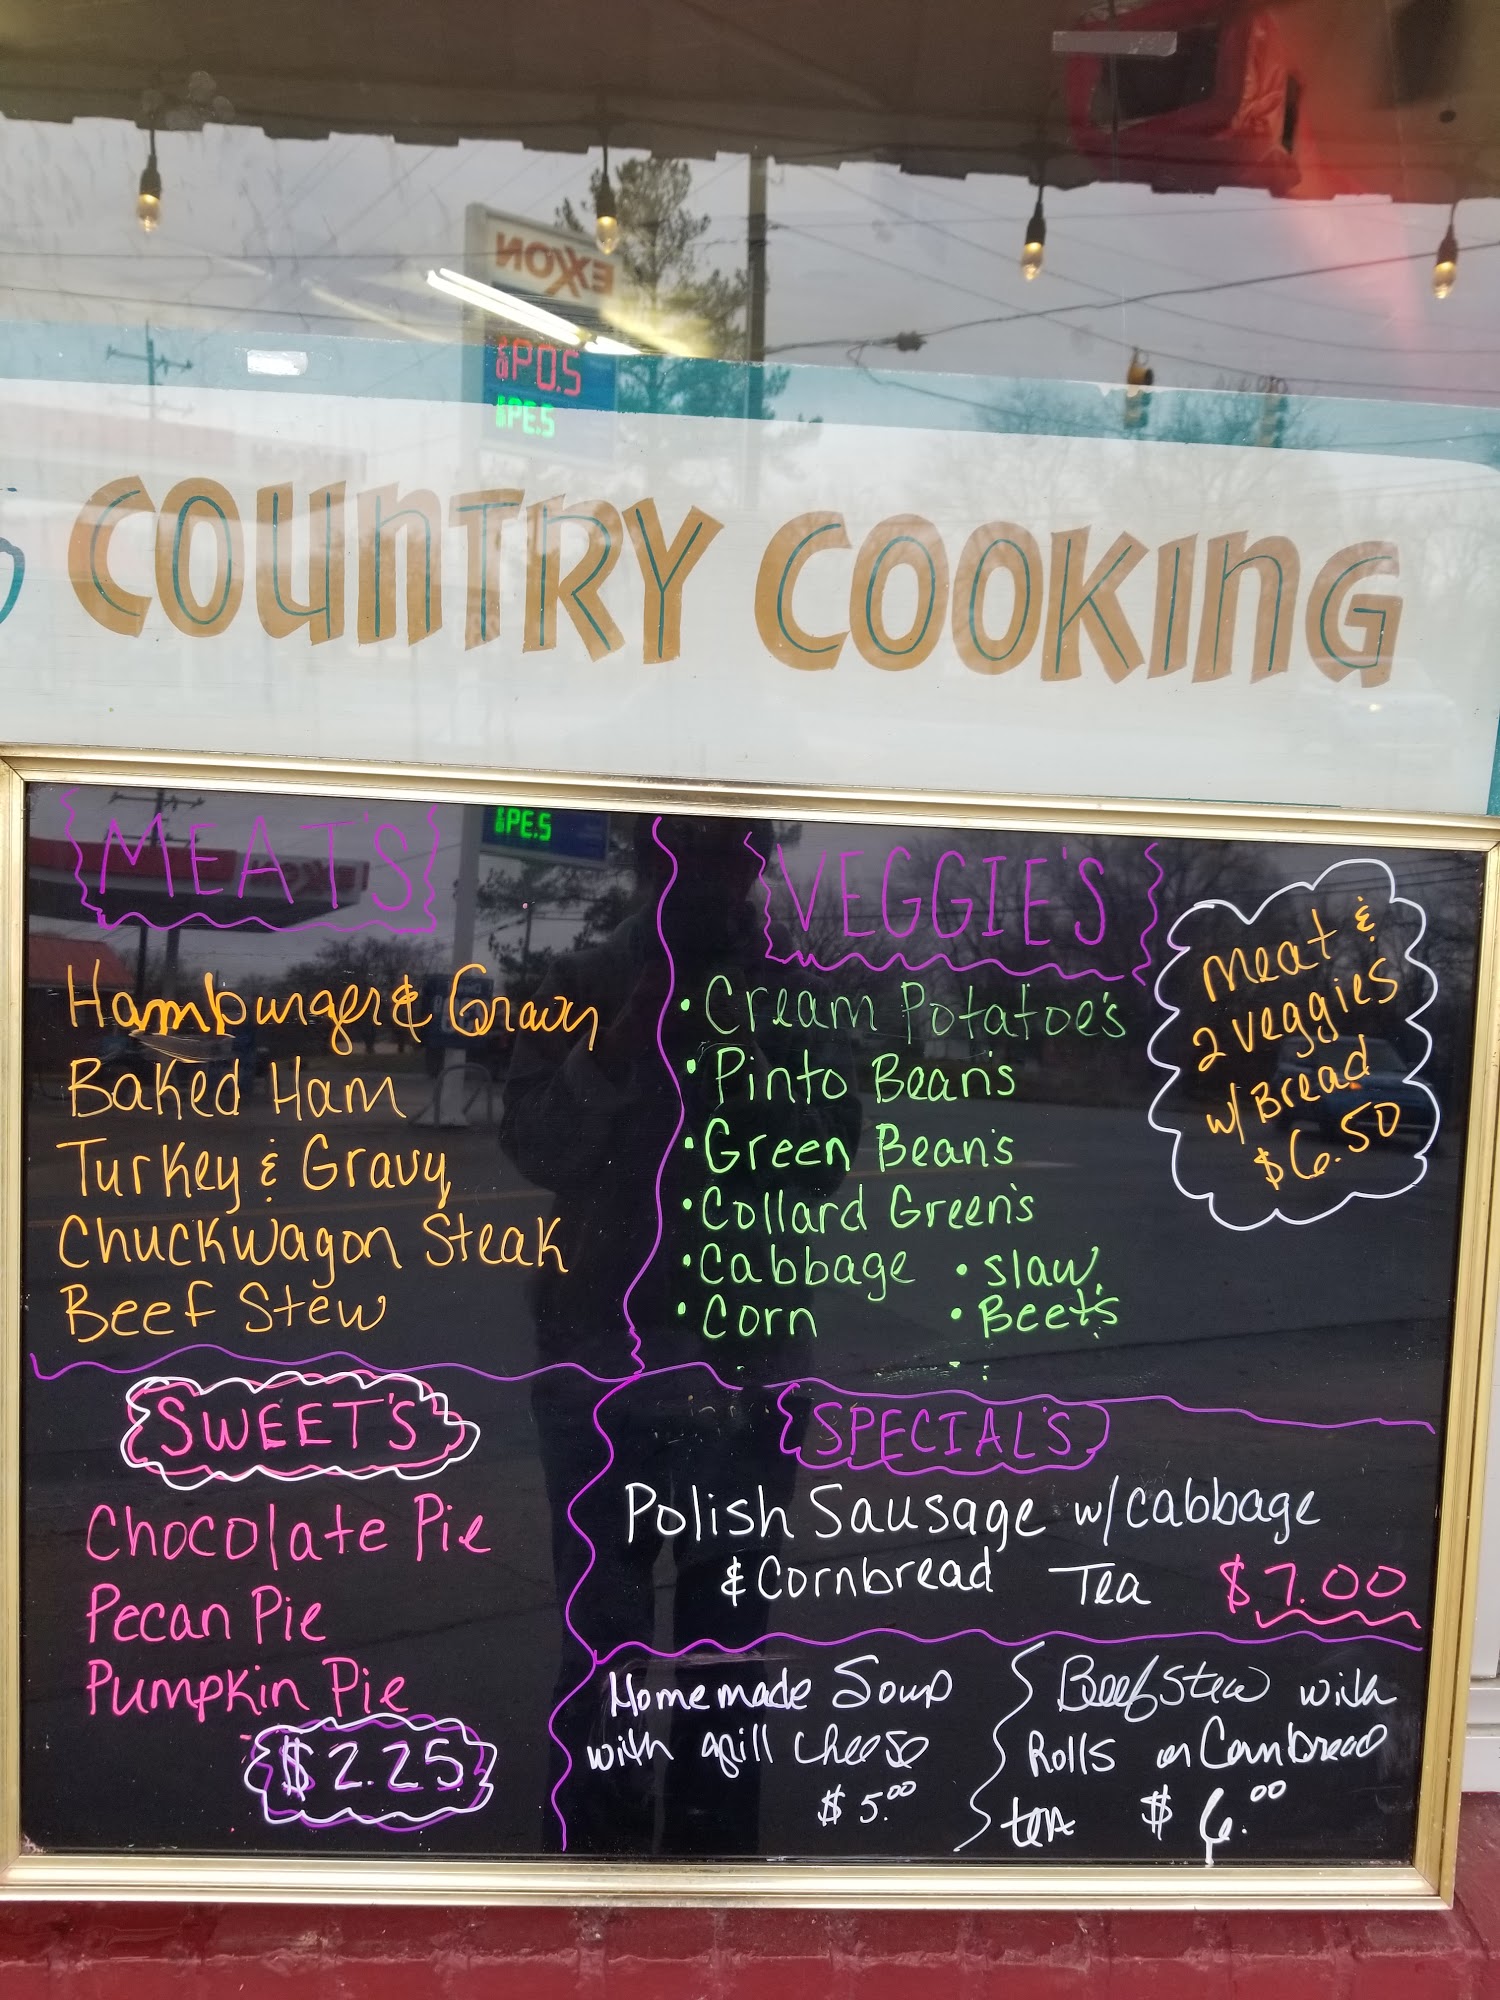 EXXON
COUNTRY COOKING
MEAT'S
Hamburger & Gravy
Baked Ham
Turkey & Gravy
Chuckwagon Steak
Beef Stew
VEGGIE'S
• Cream Potatoe's
• Pinto Bean's
• Green Bean's
• Collard Green's
• Cabbage • slaw
• Corn • Beets
meat &
2 veggies
w/ Bread
$6.50
SWEET'S
Chocolate Pie
Pecan Pie
Pumpkin Pie
$2.25
SPECIAL'S
Polish Sausage w/cabbage
& Cornbread Tea $7.00
Homemade Soup
with grill cheese
$5.00
Beef Stew with
Rolls or Cornbread
tea $6.00